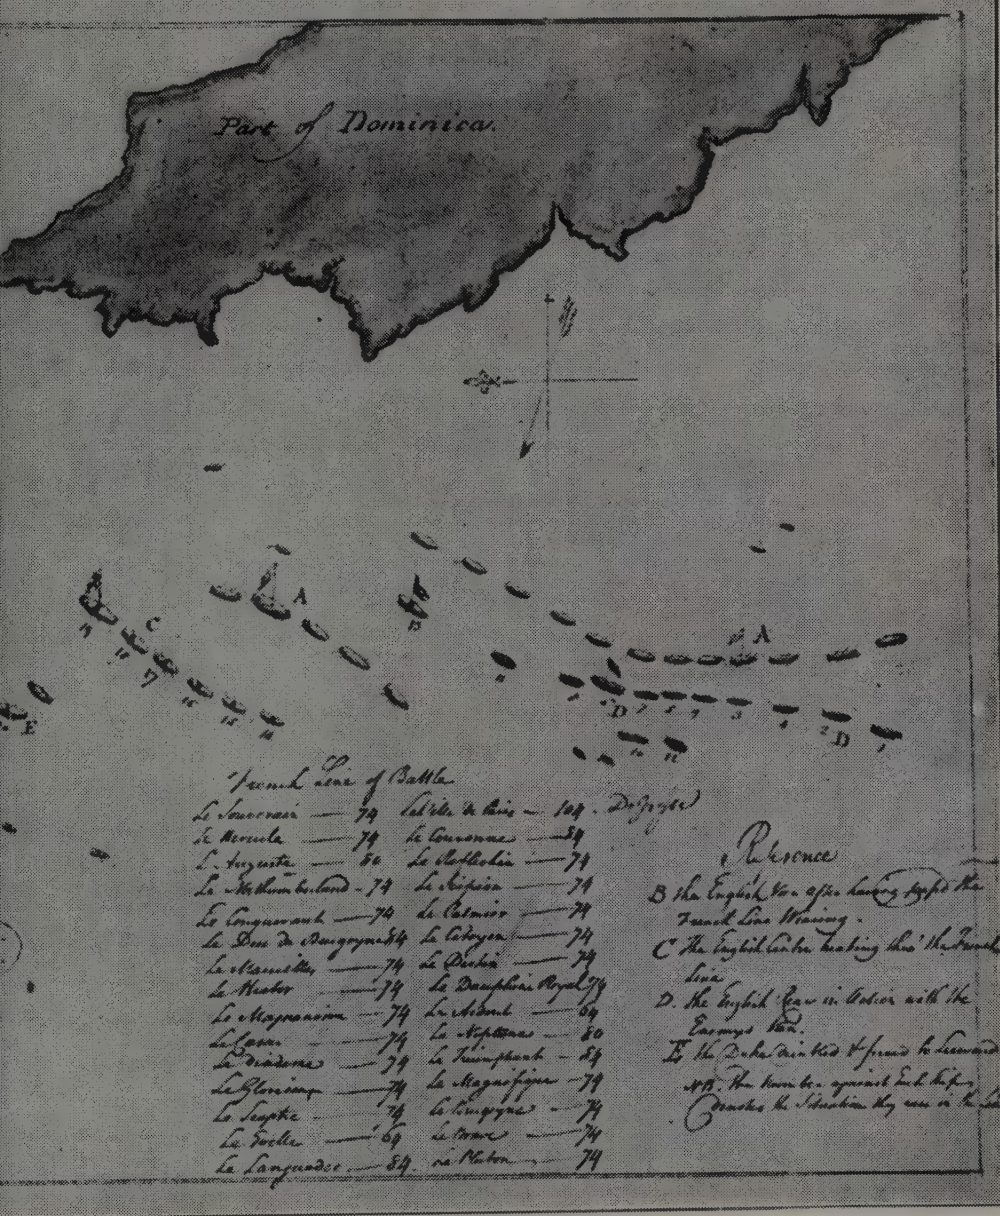 Part of Dominica.
A
C
A
13
19
18
17
16
15
14
E
D
D
French Line of Battle
Le Souverain — 74
Le Hercule — 74
L'Auguste — 80
Le Northumberland - 74
Le Conquerant — 74
Le Duc de Burgogne 84
Le Marseilles — 74
Le Hector — 74
Le Magnanime — 74
Le Cæsar — 74
Le Diademe — 74
Le Glorieux — 74
Le Sceptre — 74
Le Eveille — 64
Le Languedoc — 84.
La Ville de Paris — 104. De Grasse
Le Couronne — 84
Le — 74
Le Scipion — 74
Le — 74
Le Citoyen — 74
Le Destin — 74
Le Dauphin Royal 74
Le Ardent — 64
Le Neptune — 80
Le Triumphant — 84
Le Magnifique — 74
Le Bourgogne — 74
Le Brave — 74
Le Pluton — 74
Reference
B the English Van after having passed the
French Line Wearing.
C The English Centre breaking thro' the French
Line
D. the English Rear in Action with the
Enemys Van.
E the Duke & forced to Leeward
NB. the Number against Each Ship
Denotes the Situation they were in the